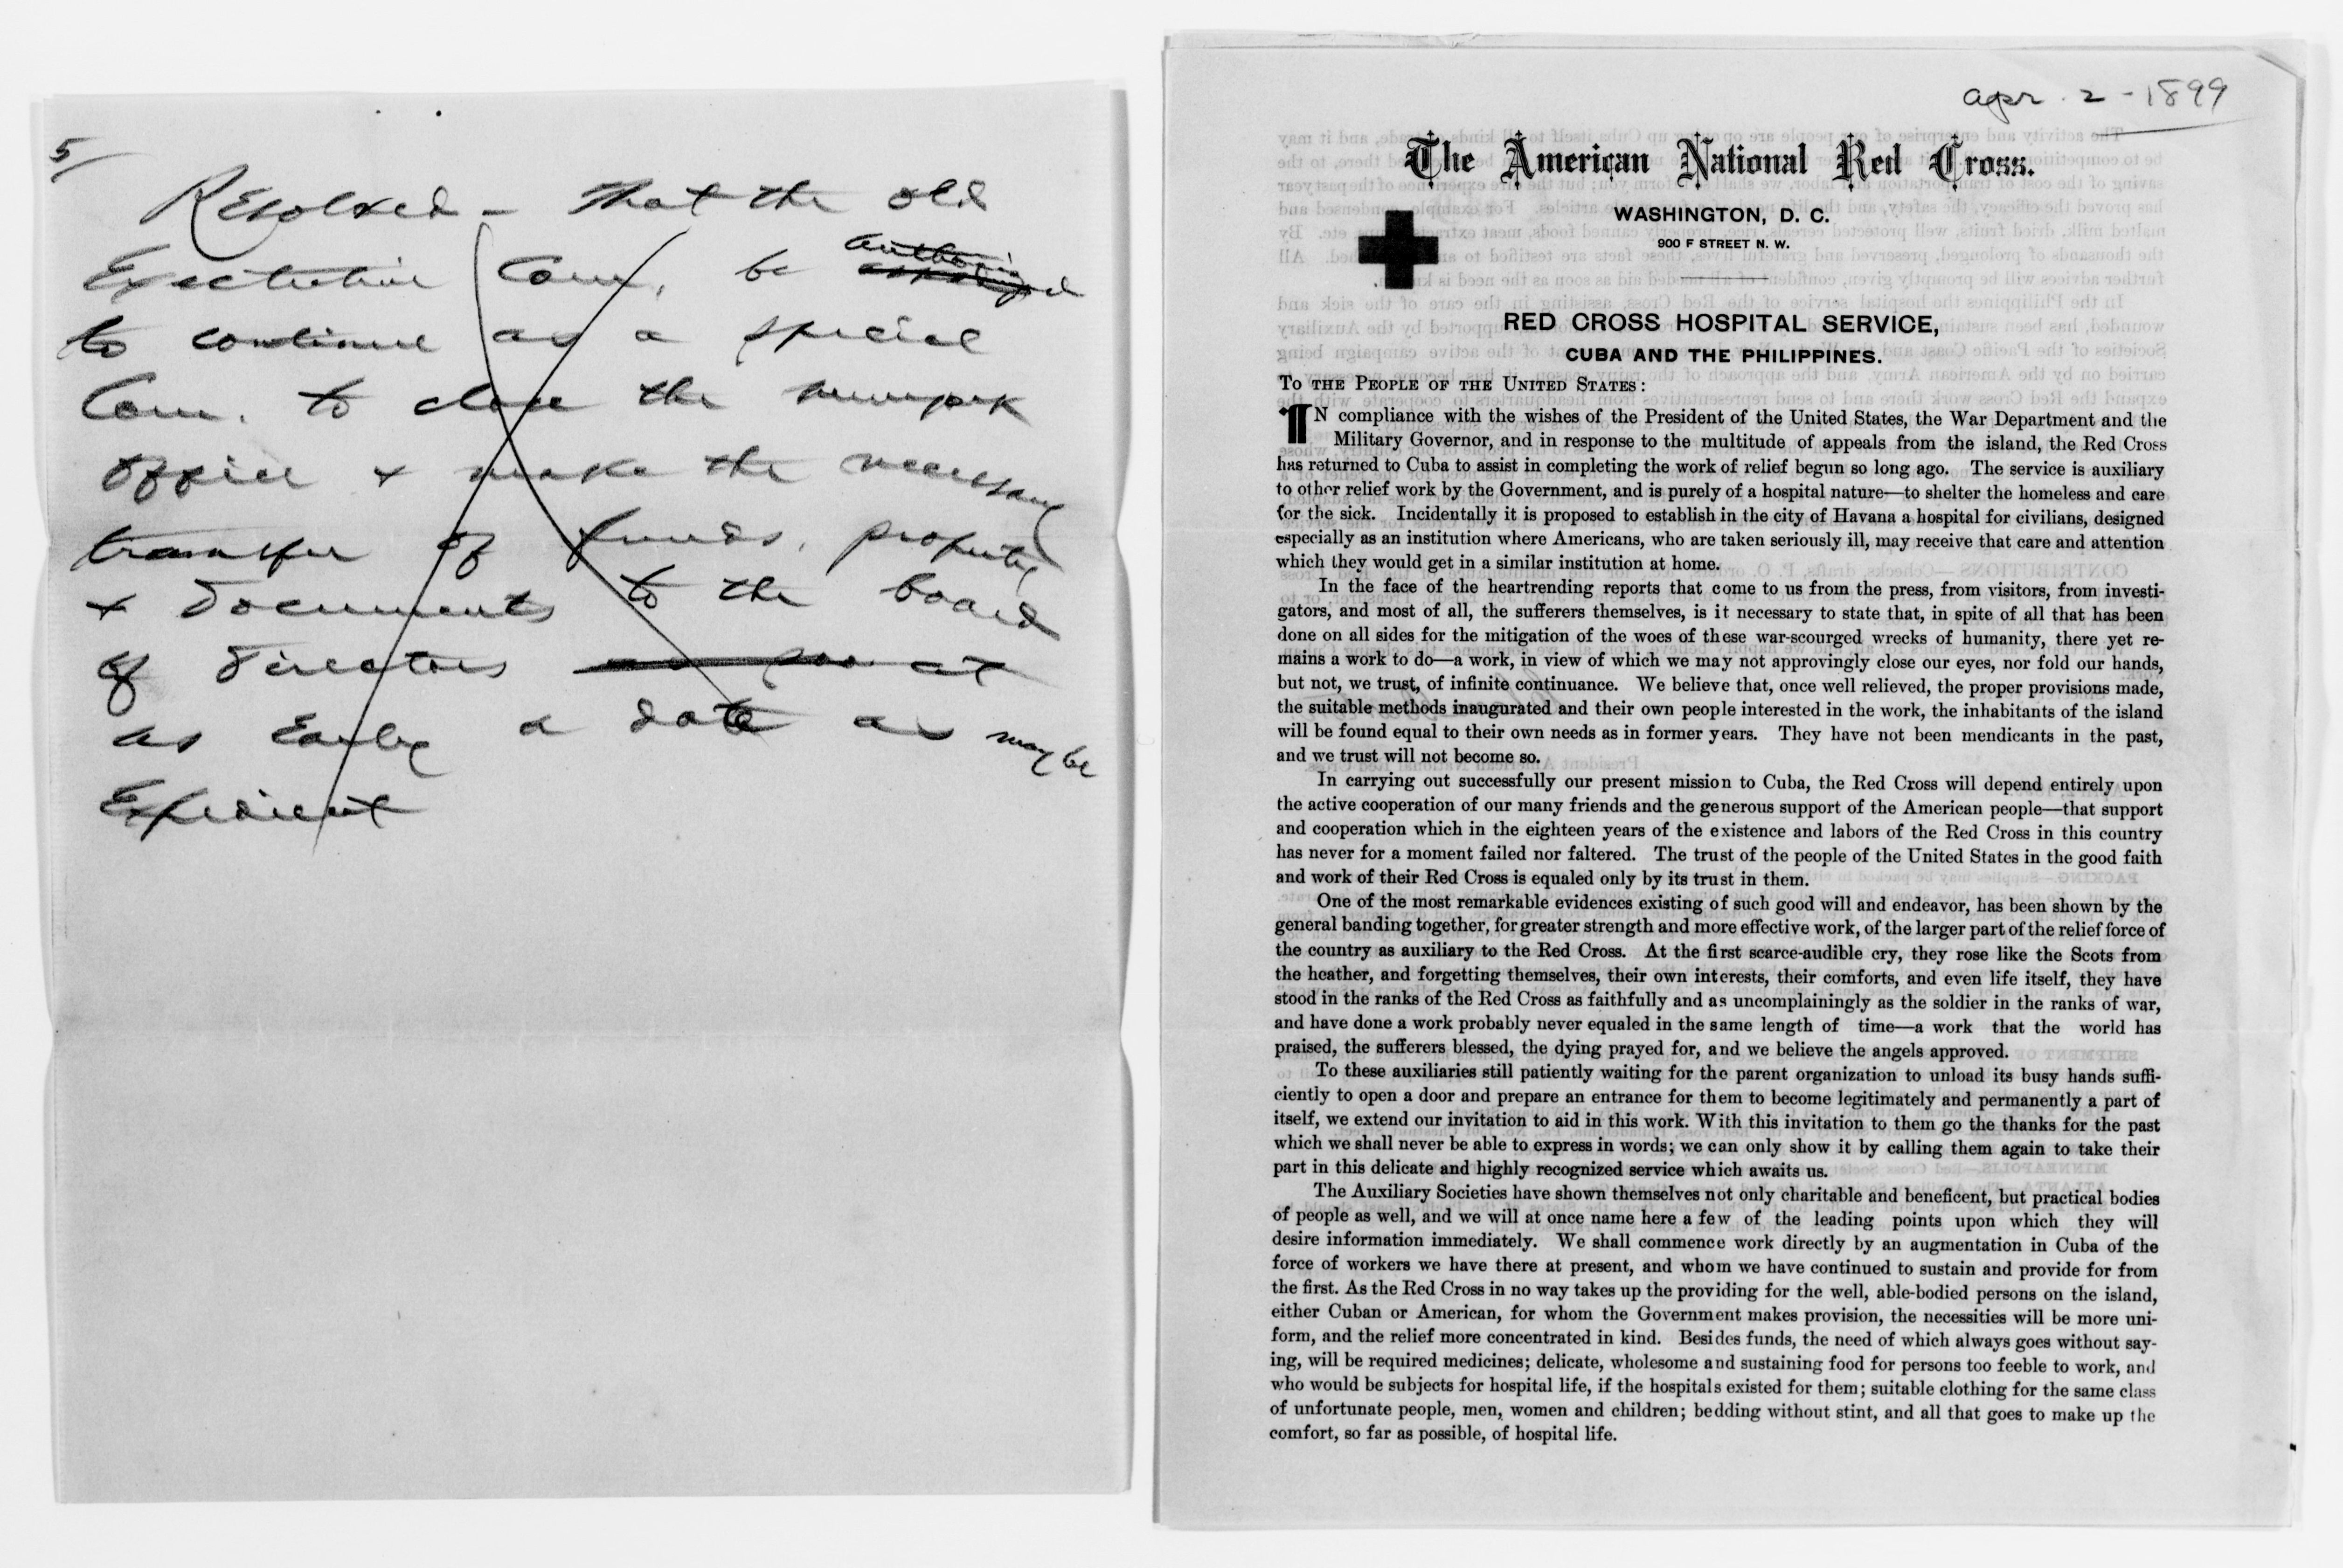 5/
Resolved - that the old
Executive Com. be authorized
to continue as a special
Com. to close the newyork
office & make the necessary
transfer of funds, property
& documents to the board
of directors at
as Early a date as may be
Expedient
apr. 2 - 1899
The American National Red Cross.
WASHINGTON, D. C.
900 F STREET N. W.
RED CROSS HOSPITAL SERVICE,
CUBA AND THE PHILIPPINES.
TO THE PEOPLE OF THE UNITED STATES:
IN compliance with the wishes of the President of the United States, the War Department and the
Military Governor, and in response to the multitude of appeals from the island, the Red Cross
has returned to Cuba to assist in completing the work of relief begun so long ago. The service is auxiliary
to other relief work by the Government, and is purely of a hospital nature—to shelter the homeless and care
for the sick. Incidentally it is proposed to establish in the city of Havana a hospital for civilians, designed
especially as an institution where Americans, who are taken seriously ill, may receive that care and attention
which they would get in a similar institution at home.
In the face of the heartrending reports that come to us from the press, from visitors, from investi-
gators, and most of all, the sufferers themselves, is it necessary to state that, in spite of all that has been
done on all sides for the mitigation of the woes of these war-scourged wrecks of humanity, there yet re-
mains a work to do—a work, in view of which we may not approvingly close our eyes, nor fold our hands,
but not, we trust, of infinite continuance. We believe that, once well relieved, the proper provisions made,
the suitable methods inaugurated and their own people interested in the work, the inhabitants of the island
will be found equal to their own needs as in former years. They have not been mendicants in the past,
and we trust will not become so.
In carrying out successfully our present mission to Cuba, the Red Cross will depend entirely upon
the active cooperation of our many friends and the generous support of the American people—that support
and cooperation which in the eighteen years of the existence and labors of the Red Cross in this country
has never for a moment failed nor faltered. The trust of the people of the United States in the good faith
and work of their Red Cross is equaled only by its trust in them.
One of the most remarkable evidences existing of such good will and endeavor, has been shown by the
general banding together, for greater strength and more effective work, of the larger part of the relief force of
the country as auxiliary to the Red Cross. At the first scarce-audible cry, they rose like the Scots from
the heather, and forgetting themselves, their own interests, their comforts, and even life itself, they have
stood in the ranks of the Red Cross as faithfully and as uncomplainingly as the soldier in the ranks of war,
and have done a work probably never equaled in the same length of time—a work that the world has
praised, the sufferers blessed, the dying prayed for, and we believe the angels approved.
To these auxiliaries still patiently waiting for the parent organization to unload its busy hands suffi-
ciently to open a door and prepare an entrance for them to become legitimately and permanently a part of
itself, we extend our invitation to aid in this work. With this invitation to them go the thanks for the past
which we shall never be able to express in words; we can only show it by calling them again to take their
part in this delicate and highly recognized service which awaits us.
The Auxiliary Societies have shown themselves not only charitable and beneficent, but practical bodies
of people as well, and we will at once name here a few of the leading points upon which they will
desire information immediately. We shall commence work directly by an augmentation in Cuba of the
force of workers we have there at present, and whom we have continued to sustain and provide for from
the first. As the Red Cross in no way takes up the providing for the well, able-bodied persons on the island,
either Cuban or American, for whom the Government makes provision, the necessities will be more uni-
form, and the relief more concentrated in kind. Besides funds, the need of which always goes without say-
ing, will be required medicines; delicate, wholesome and sustaining food for persons too feeble to work, and
who would be subjects for hospital life, if the hospitals existed for them; suitable clothing for the same class
of unfortunate people, men, women and children; bedding without stint, and all that goes to make up the
comfort, so far as possible, of hospital life.